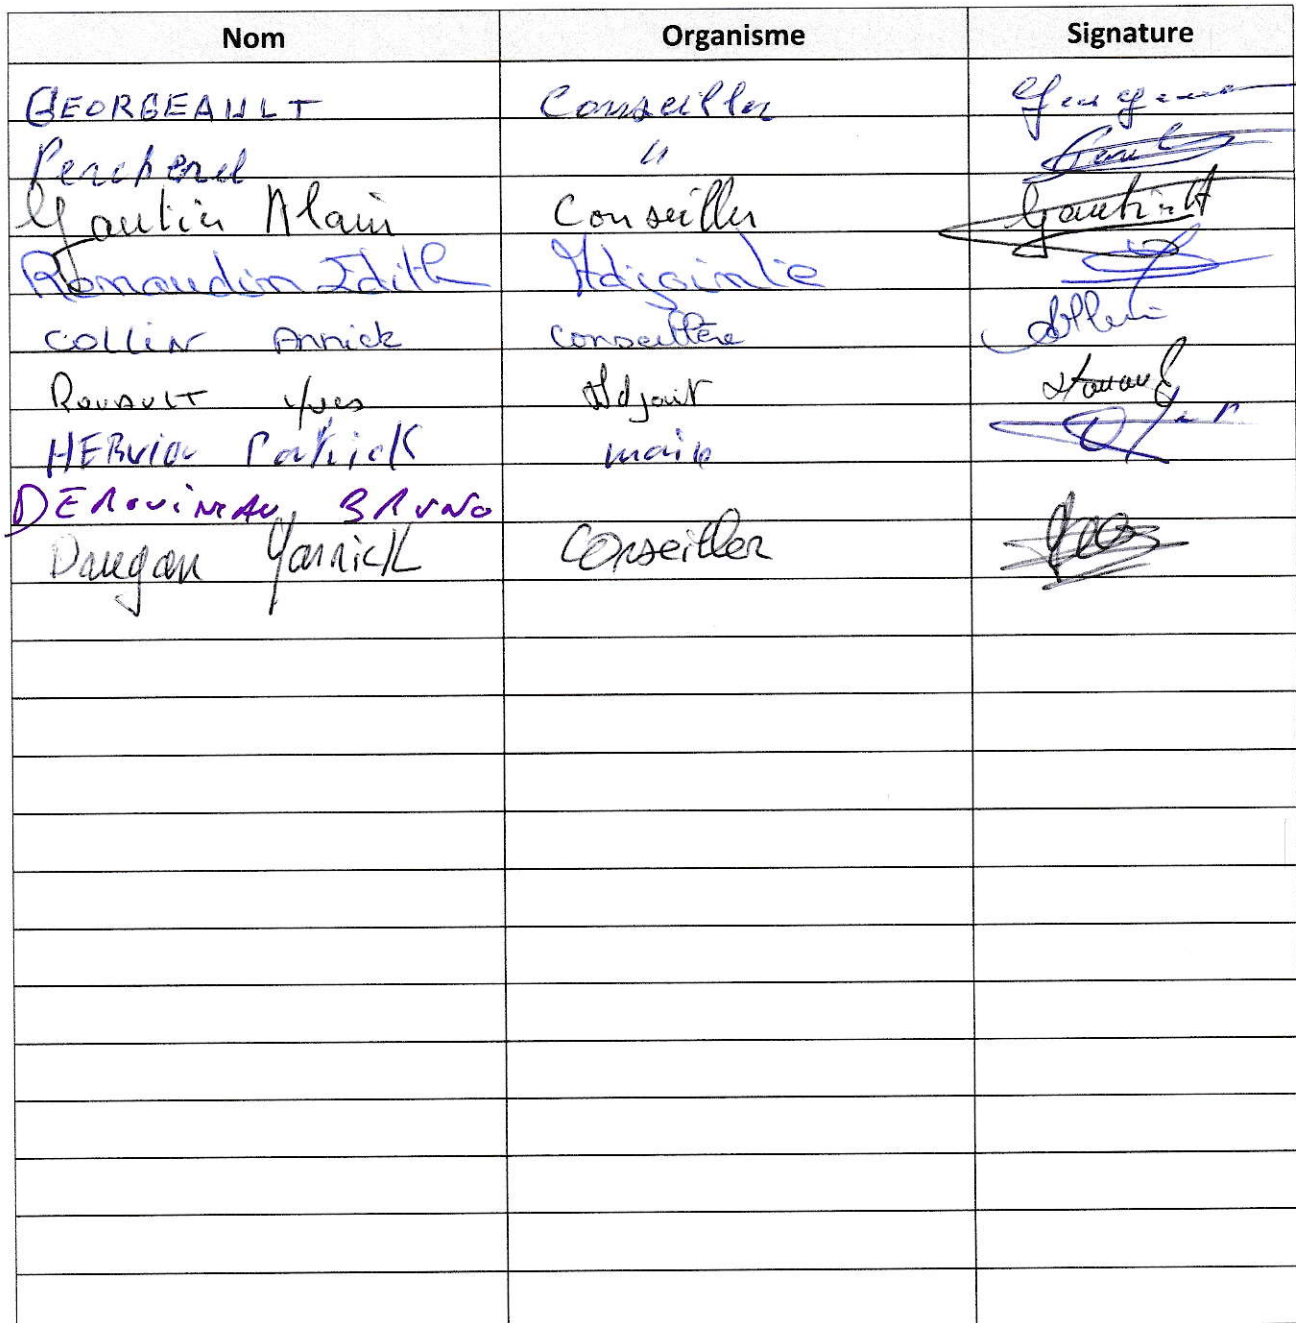 Nom Organisme Signature
GEORGEAULT Conseiller
Percherel "
Gautier Alain Conseiller Gautier A
Renaudin Edith Adjointe
COLLIN Annick conseillère
ROUAULT Yves Adjoint
HERVIOU Patrick maire
DEROUINEAU BRUNO
Daugan Yannick Conseiller